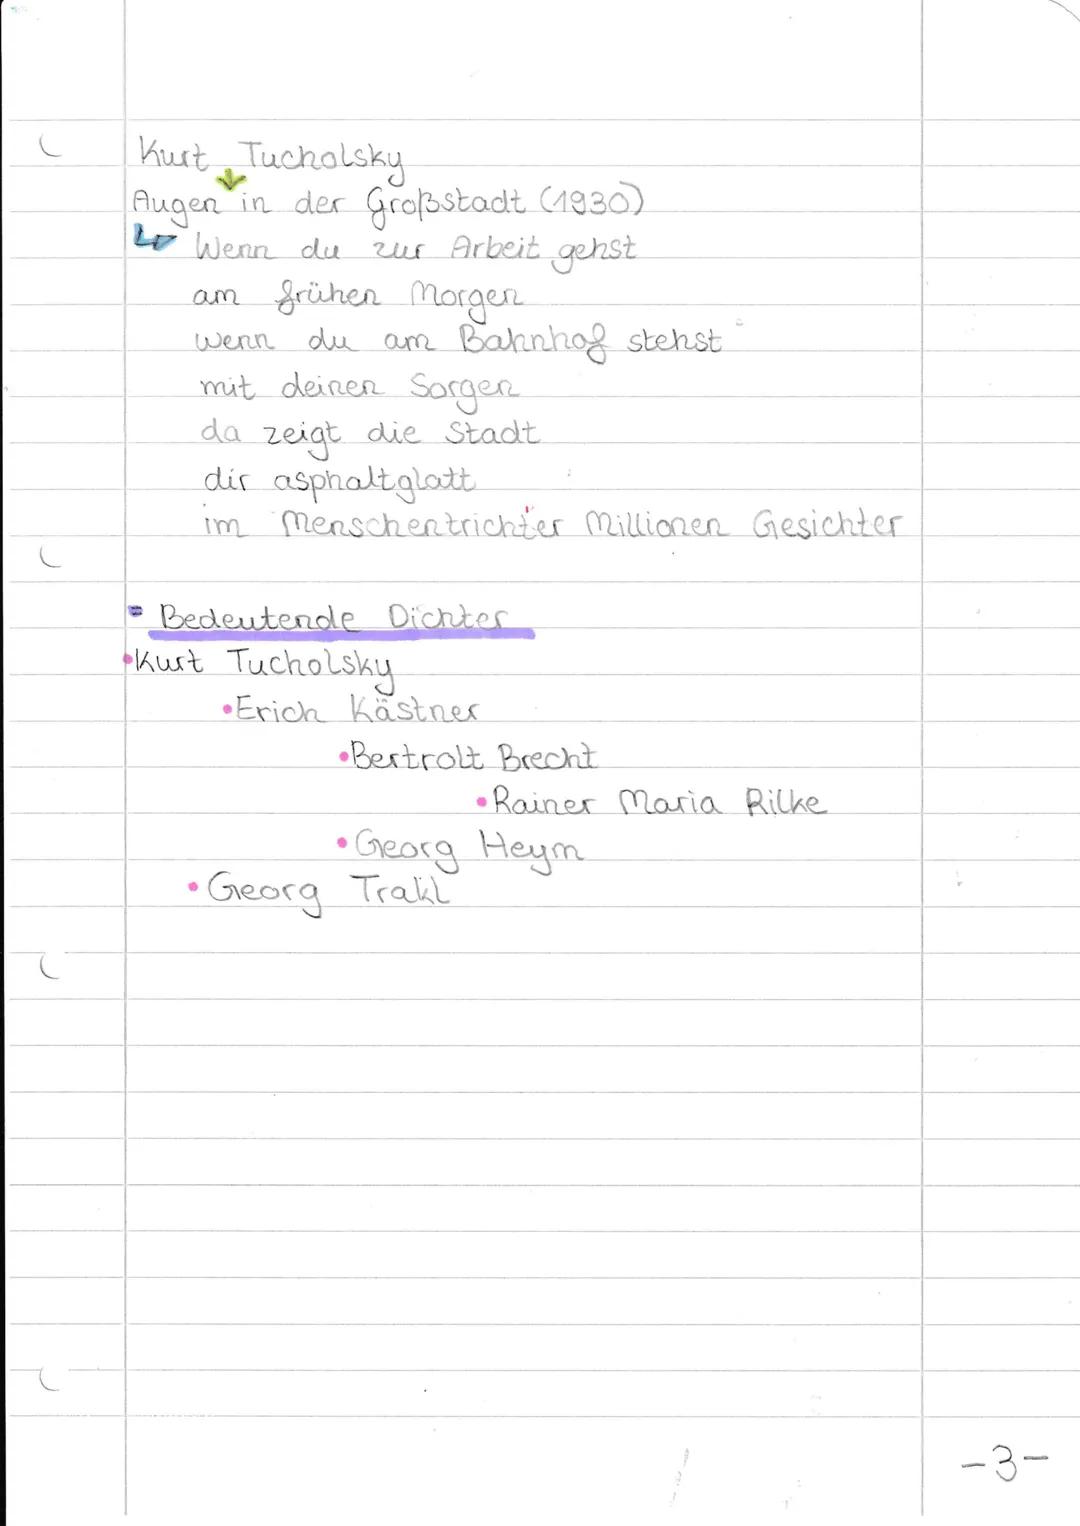 Kurt Tucholsky
Augen in der Großstadt (1930)
Wenn du zur Arbeit gehst
am frühen Morgen
wenn du am Bahnhof stehst
mit deinen Sorgen
da zeigt die Stadt
dir asphaltglatt
im Menschentrichter Millionen Gesichter
Bedeutende Dichter
•Kurt Tucholsky
•Erich Kästner
•Bertrolt Brecht
•Rainer Maria Rilke
•Georg Heym
•Georg Trakl
-3-